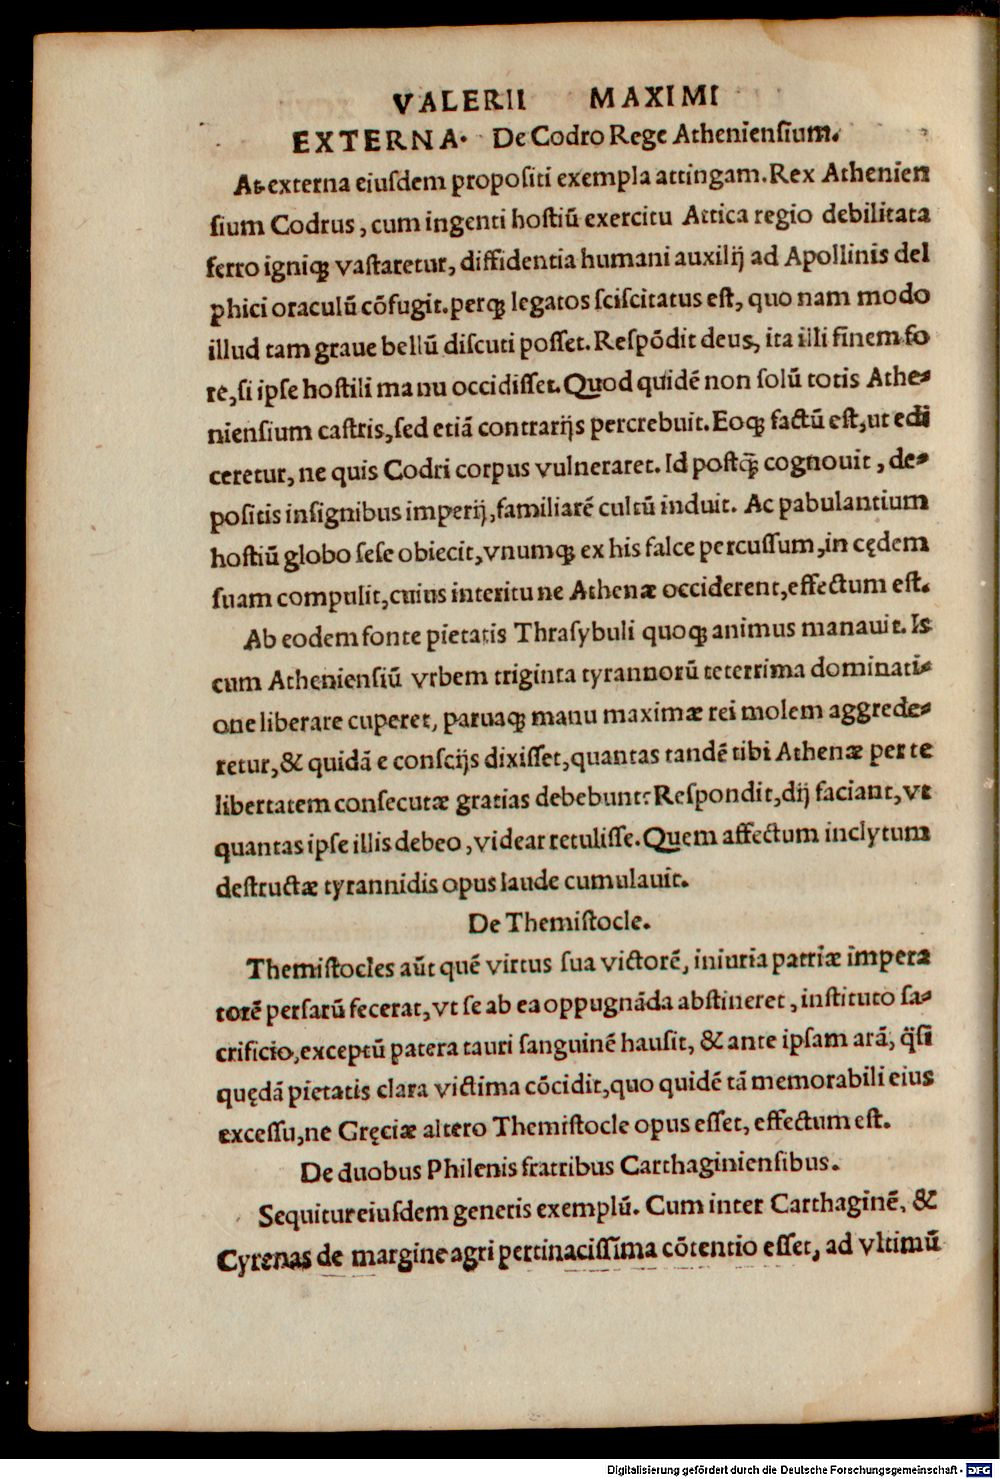 VALERII MAXIMI
EXTERNA. De Codro Rege Athenienſium.
At externa eiuſdem propoſiti exempla attingam. Rex Athenien
ſium Codrus, cum ingenti hoſtiũ exercitu Attica regio debilitata
ferro igniqꝫ vaſtaretur, diffidentia humani auxilij ad Apollinis del
phici oraculũ cõfugit. perqꝫ legatos ſciſcitatus eſt, quo nam modo
illud tam graue bellũ diſcuti poſſet. Reſpõdit deus, ita illi finem fo
re, ſi ipſe hoſtili manu occidiſſet. Quod quidẽ non ſolũ totis Athe⸗
nienſium caſtris, ſed etiã contrarijs percrebuit. Eoqꝫ factũ eſt, ut edi
ceretur, ne quis Codri corpus vulneraret. Id poſtq̃ cognouit, de⸗
poſitis inſignibus imperij, familiarẽ cultũ induit. Ac pabulantium
hoſtiũ globo ſeſe obiecit, vnumqꝫ ex his falce percuſſum, in cędem
ſuam compulit, cuius interitu ne Athenæ occiderent, effectum eſt.
Ab eodem fonte pietatis Thraſybuli quoqꝫ animus manauit. Is
cum Athenienſiũ vrbem triginta tyrannorũ teterrima dominati⸗
one liberare cuperet, paruaqꝫ manu maximæ rei molem aggrede⸗
retur, & quidã e conſcijs dixiſſet, quantas tandẽ tibi Athenæ per te
libertatem conſecutæ gratias debebunt? Reſpondit, dij faciant, vt
quantas ipſe illis debeo, videar retuliſſe. Quem affectum inclytum
deſtructæ tyrannidis opus laude cumulauit.
De Themiſtocle.
Themiſtocles aũt quẽ virtus ſua victorẽ, iniuria patriæ impera
torẽ perſarũ fecerat, vt ſe ab ea oppugnãda abſtineret, inſtituto ſa⸗
crificio, exceptũ patera tauri ſanguinẽ hauſit, & ante ipſam arã, q̃ſi
quędã pietatis clara victima cõcidit, quo quidẽ tã memorabili eius
exceſſu, ne Gręciæ altero Themiſtocle opus eſſet, effectum eſt.
De duobus Philenis fratribus Carthaginienſibus.
Sequitur eiuſdem generis exemplũ. Cum inter Carthaginẽ, &
Cyrenas de margine agri pertinaciſſima cõtentio eſſet, ad vltimũ
Digitalisierung gefördert durch die Deutsche Forschungsgemeinschaft - DFG